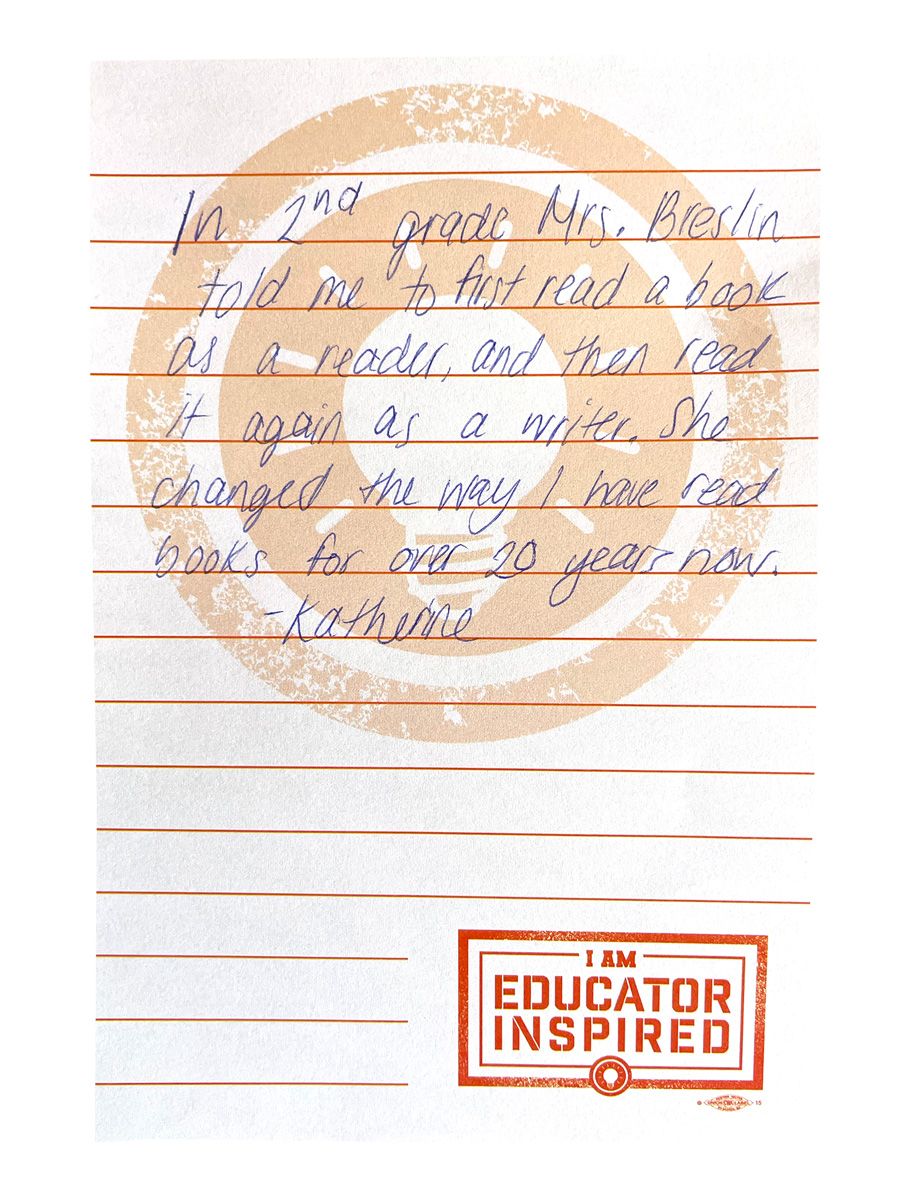 In 2nd grade Mrs. Breslin
told me to first read a book
as a reader, and then read
it again as a writer. She
changed the way I have read
books for over 20 years now.
-Katherine
I AM
EDUCATOR
INSPIRED